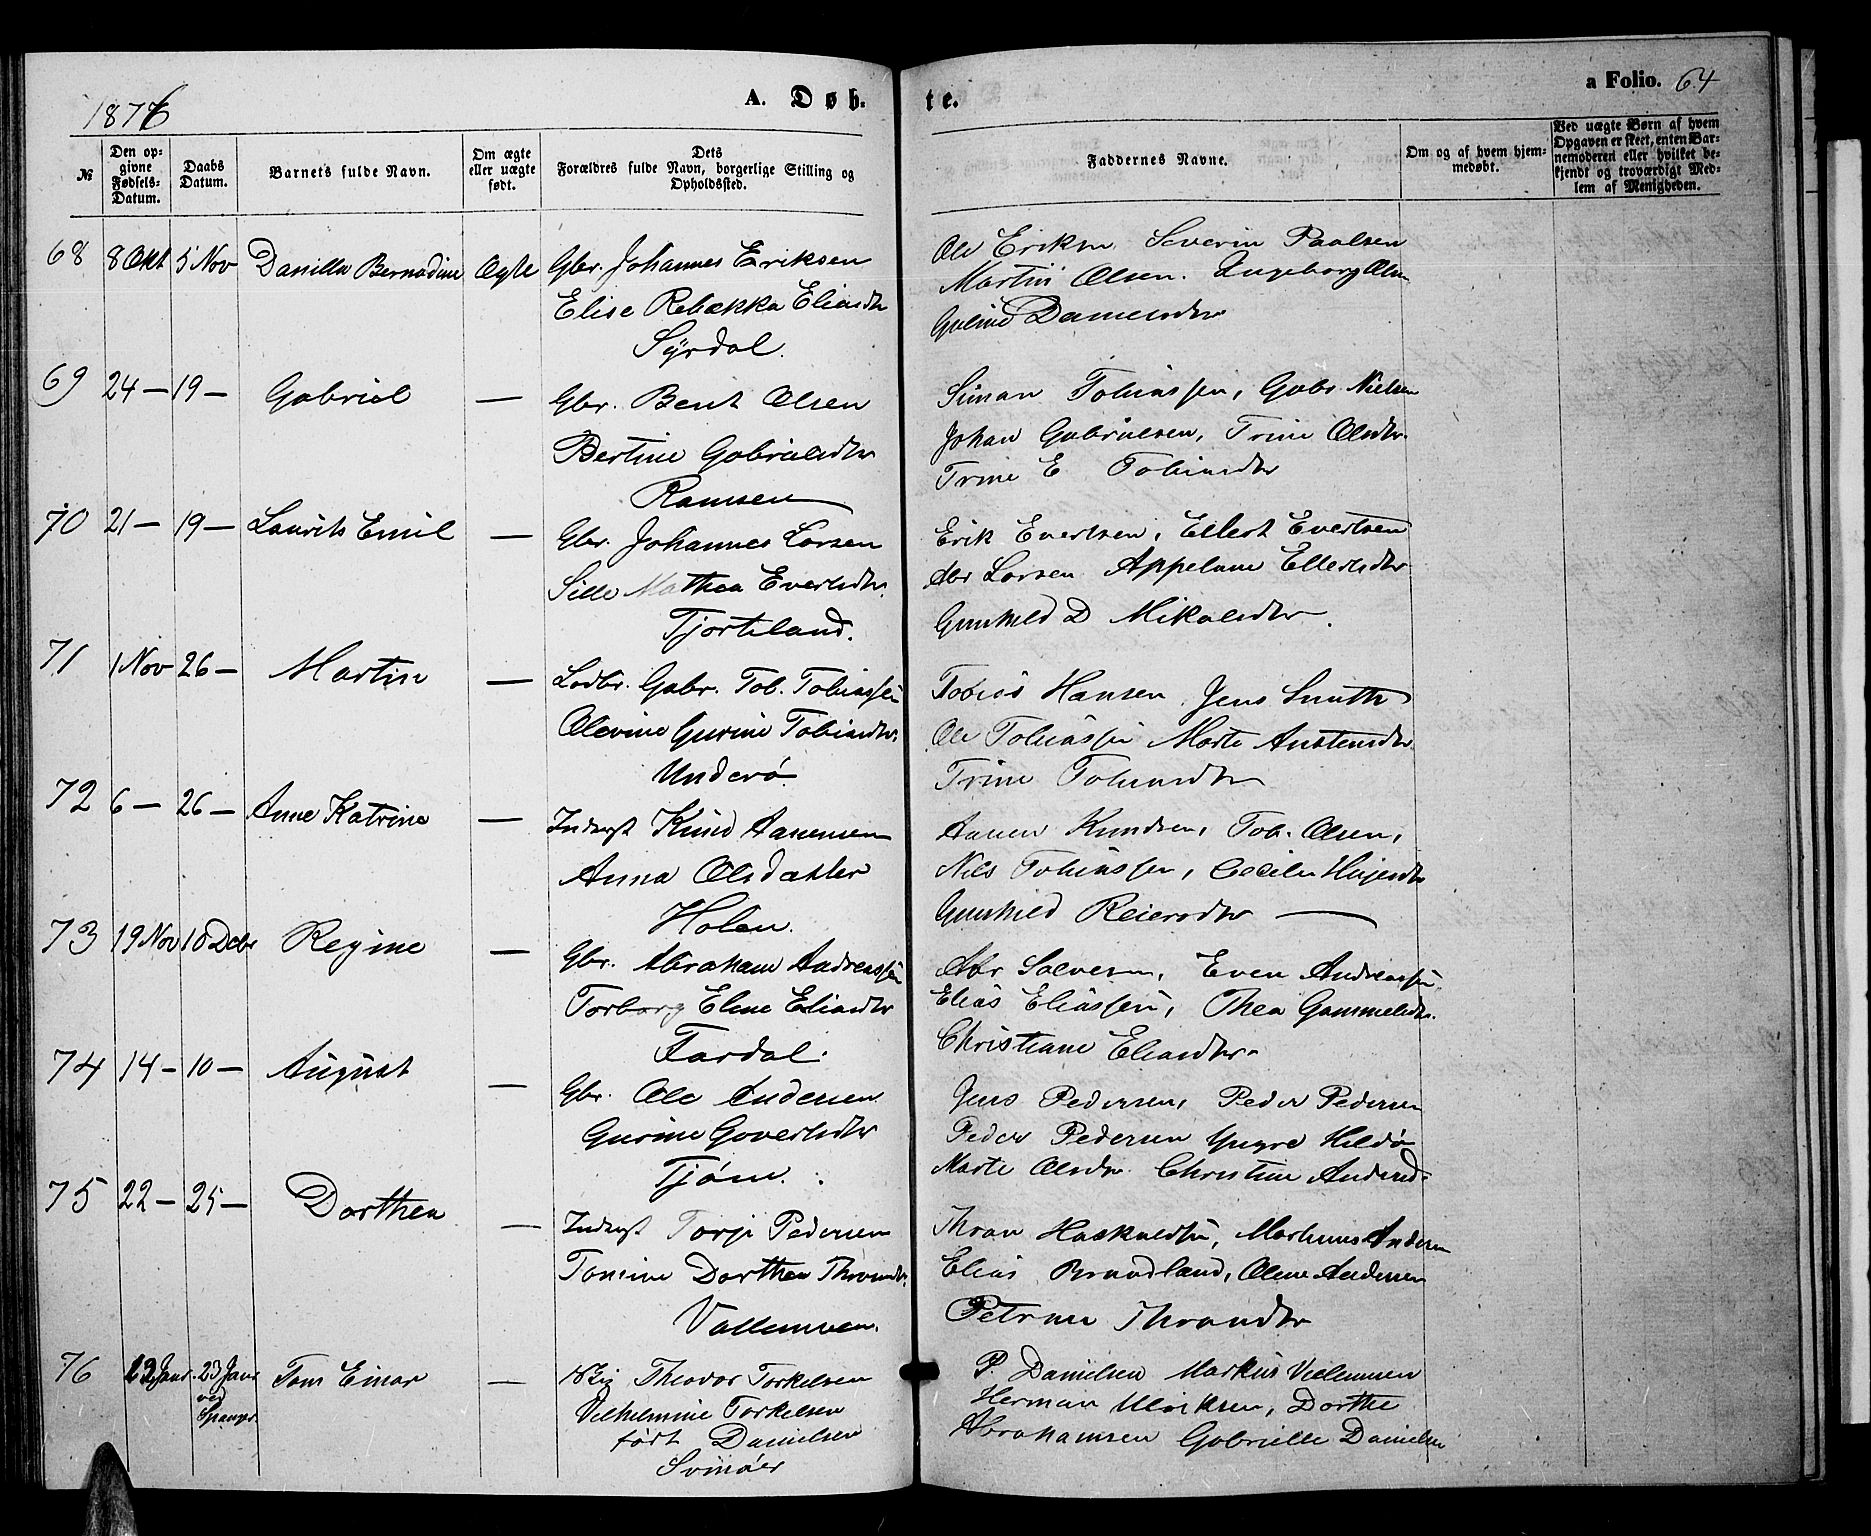 1876
A. Døb-
te.
a Folio. 64
№
Den op-
givne
Fødsels-
Datum.
Daabs
Datum.
Barnets fulde Navn.
Om ægte
eller uægte
født.
Dets
Forældres fulde Navn, borgerlige Stilling og
Opholdssted.
Faddernes Navne.
Om og af hvem hjem-
medøbt.
Ved uægte Børn af hvem
Opgaven er skeet, enten Bar-
nemoderen eller hvilket be-
kjendt og troværdigt Med-
lem af Menigheden.
68 8 Okt 5 Nov Danilla Bernadine Ægte Gbr. Johannes Eriksen
Elise Rebækka Eliasdtr
Syrdal.
Ole Eriksen Severin Paalsen
Martin Olsen. Ingeborg Olsen
Danielsdtr
69 24 — 19 — Gabriel — Gbr. Bent Olsen
Bertine Gabrielsdtr
Ramsen
Simon Tobiassen, Gabr. Nielsen
Johan Gabrielsen, Trine Olsdtr.
Trine E Tobiasdtr
70 21 — 19 — Laurits Emil — Gbr. Johannes Larsen
Sille Mathea Evertsdtr.
Tjorteland.
Erik Evertsen, Ellert Evertsen
Abr Larsen Appelone Ellertsdtr
Gunhild D Mikalsdtr.
71 1 Nov 26 — Martin — Lodbr. Gabr. Tob. Tobiassen
Olevine Gurine Tobiasdtr.
Underø
Tobias Hansen, Jens Smith
Ole Tobiassen Marte Anstensdtr
Trine Tobiasdtr
72 6 — 26 — Anne Katrine — Inderst Knud Aanensen
Anna Olsdatter
Holen.
Aanen Knudsen, Tob. Olsen,
Nils Tobiassen, Cecilie
Gunhild Reiersdtr —
73 19 Nov 10 Decbr Regine — Gbr. Abraham Andreassen
Torborg Elene Eliasdtr
Fardal.
Abr Salvesen, Even Andreassen.
Elias Eliassen, Thea Gammelsdtr.
Christiane Eliasdtr.
74 14 — 10 — August — Gbr. Ole Andersen
Gurine Govertsdtr
Tjøm.
Jens Pedersen, Peder Pedersen
Peder Pedersen Yngve Hildø
Marte Olsdr. Christine Andersd.
75 22 — 25 — Dorthea — Inderst Torje Pedersen
Tomine Dorthea Throndsdtr.
Vallemoen.
Thron Haskuldsen, Martinus Andersen
Elias Brandland, Olene Andersen
Petrine Throndsdtr
76 Janr. 23 Janr
ved
Spangr.
Tom Einar — Theodor Torkelsen
Vilhelmine Torkelsen
født Danielsen
Svinøer
P. Danielsen Markus Vellemsen
Herman Ulriksen, Dorthe
Abrahamsen Gabrielle Danielsen